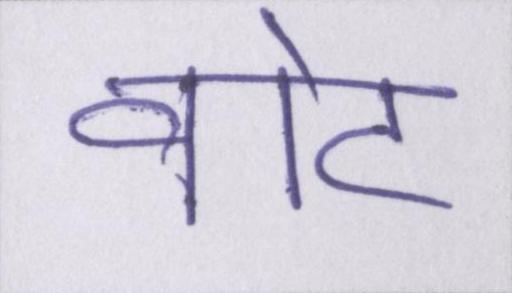 वोट